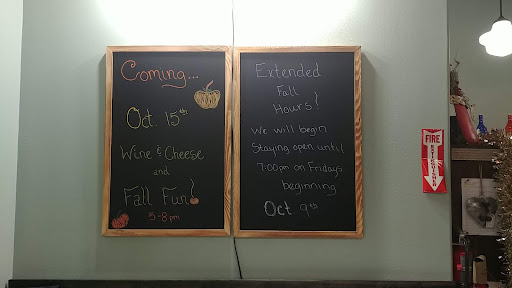 Coming...
Oct. 15th
Wine & Cheese
and
Fall Fun!
5-8 pm
Extended
Fall
Hours!
We will begin
Staying open until
7:00pm on Fridays
beginning
Oct 9th
FIRE
EXTINGUISHER